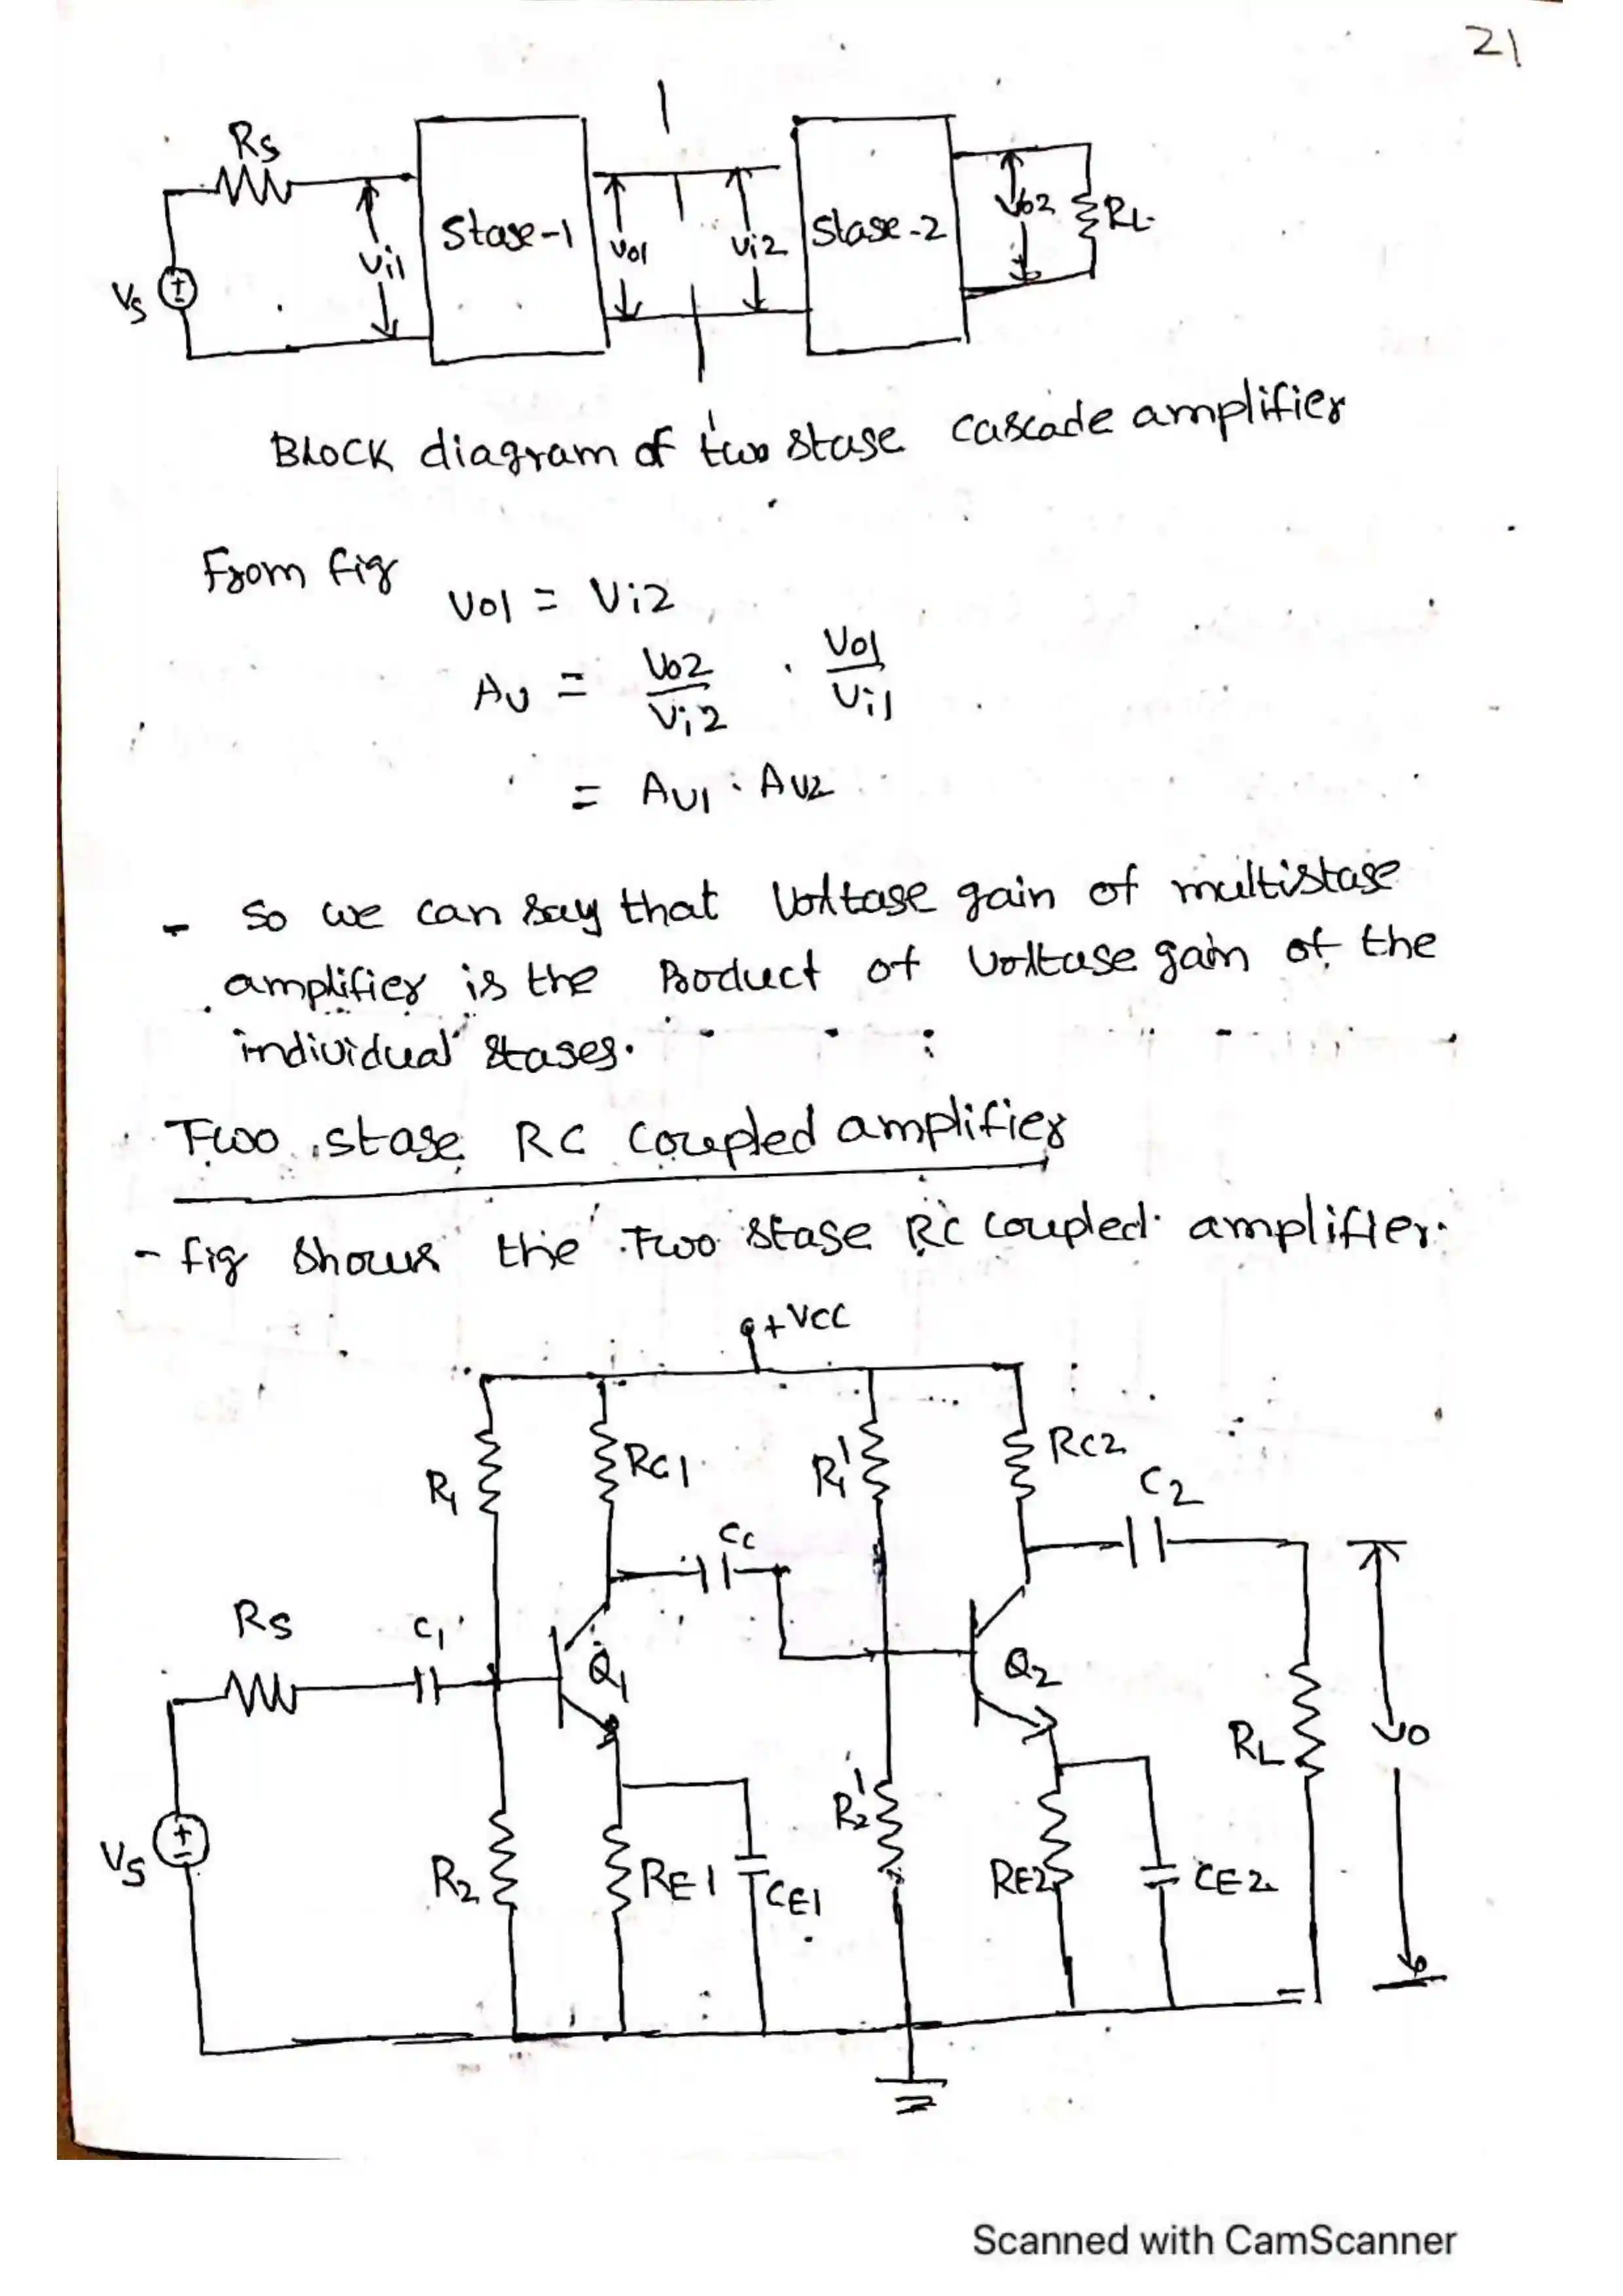 21
Rs
Vs
Vi1
Stage-1
Vo1
Vi2
Stage-2
Vo2
RL
Block diagram of two stage cascade amplifier
From fig
Vo1 = Vi2
Av = Vo2/Vi2 · Vo1/Vi1
= Av1 · Av2
- So we can say that Voltage gain of multistage
amplifier is the Product of Voltage gain of the
individual stages.
Two stage RC Coupled amplifier
- fig shows the Two stage RC coupled amplifier.
+VCC
R1
RC1
R1'
RC2
C2
Cc
Rs
C1
Q1
Q2
RL
Vo
Vs
R2
RE1
CE1
R2'
RE2
CE2
Scanned with CamScanner